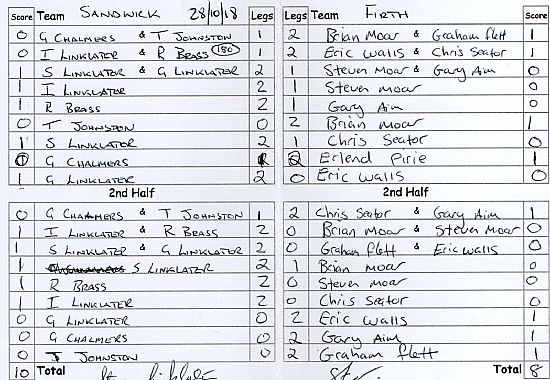 Score Team SANDWICK 28/10/18 Legs Legs Team FIRTH Score
0 G CHALMERS & T JOHNSTON 1 2 Brian Moar & Graham flett 1
0 I LINKLATER & R BRASS 180 1 2 Eric Walls & Chris Seator 1
1 S LINKLATER & G LINKLATER 2 1 Steven Moar & Gary Aim 0
1 I LINKLATER 2 1 Steven moar 0
1 R BRASS 2 1 Gary Aim 0
0 T JOHNSTON 0 2 Brian moar 1
1 S LINKLATER 2 1 Chris Seator 0
G CHALMERS 2 Erlend Pirie 1
1 G LINKLATER 2 0 Eric Walls 0
2nd Half 2nd Half
0 G CHALMERS & T JOHNSTON 1 2 Chris Seator & Gary Aim 1
1 I LINKLATER & R BRASS 2 0 Brian Moar & Steven Moar 0
1 S LINKLATER & G LINKLATER 2 0 Graham flett & Eric Walls 0
1 S LINKLATER 2 1 Brian moar 0
1 R BRASS 2 0 Steven moar 0
1 I LINKLATER 2 0 Chris Seator 0
0 G LINKLATER 0 2 Eric Walls 1
0 G CHALMERS 0 2 Gary Aim 1
0 T JOHNSTON 0 2 Graham flett 1
10 Total Total 8